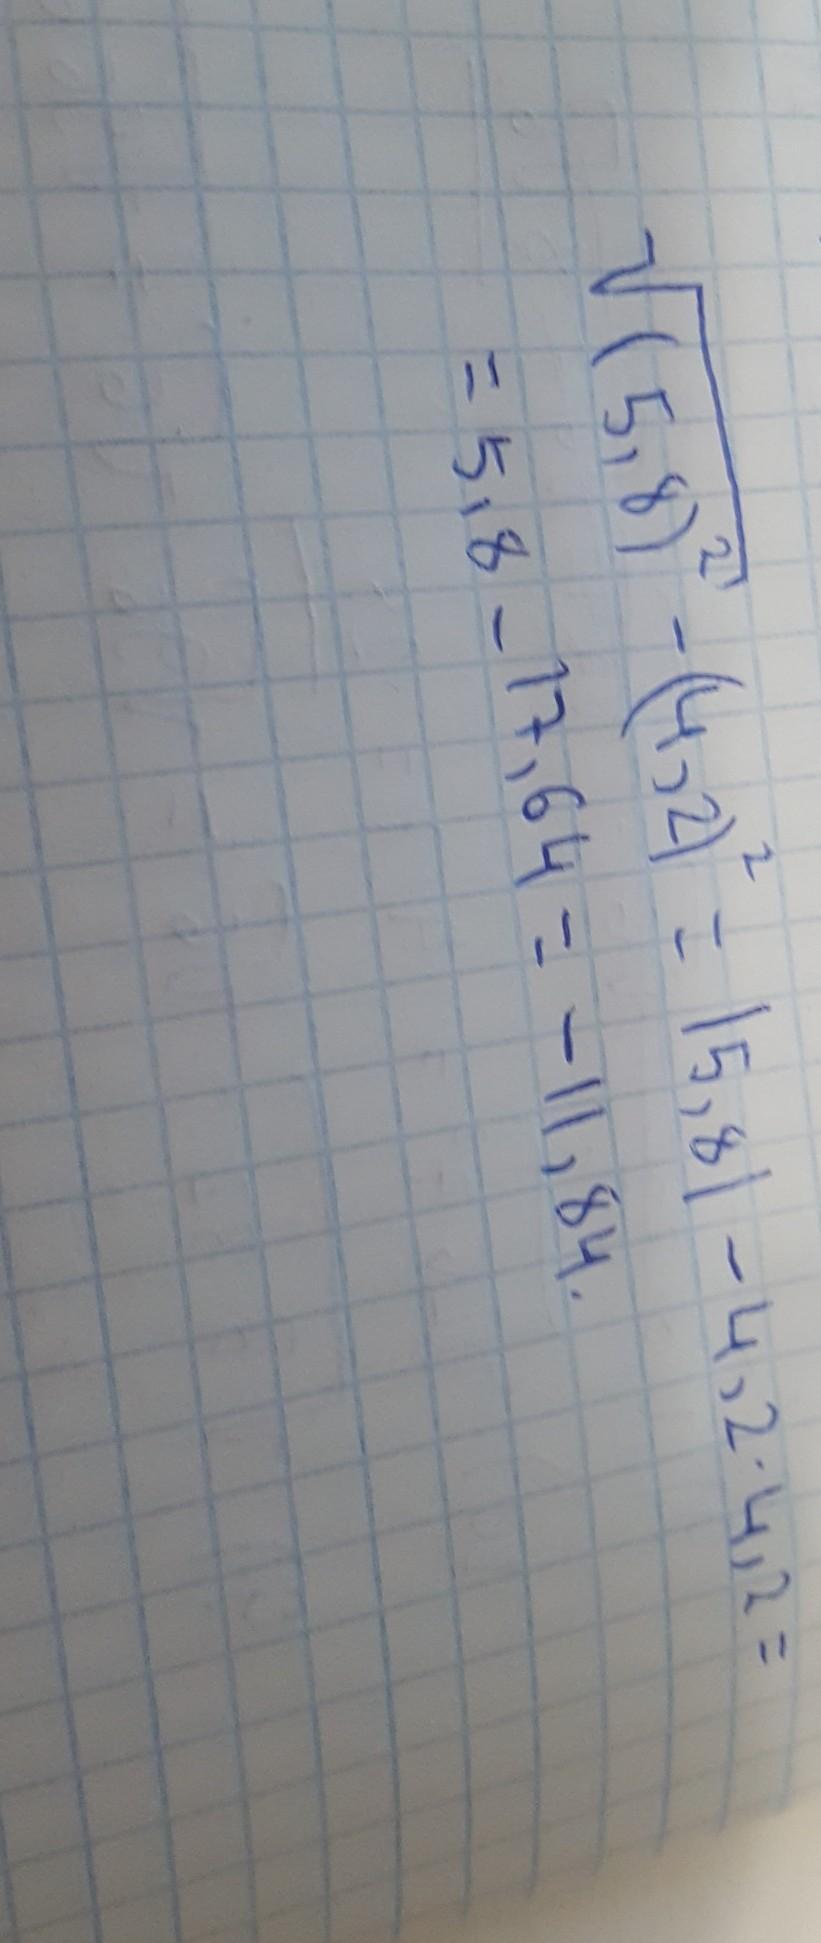 √(5,8)² - (4,2)² = |5,8| - 4,2·4,2 =
= 5,8 - 17,64 = - 11,84.